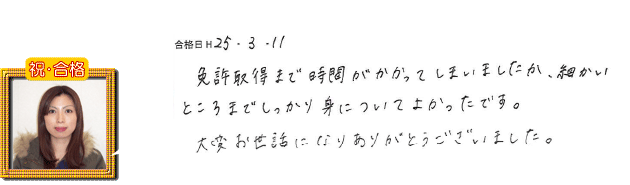 合格日H25・3・11
祝・合格
免許取得まで時間がかかってしまいましたが、細かい
ところまでしっかり身についてよかったです。
大変お世話になりありがとうございました。